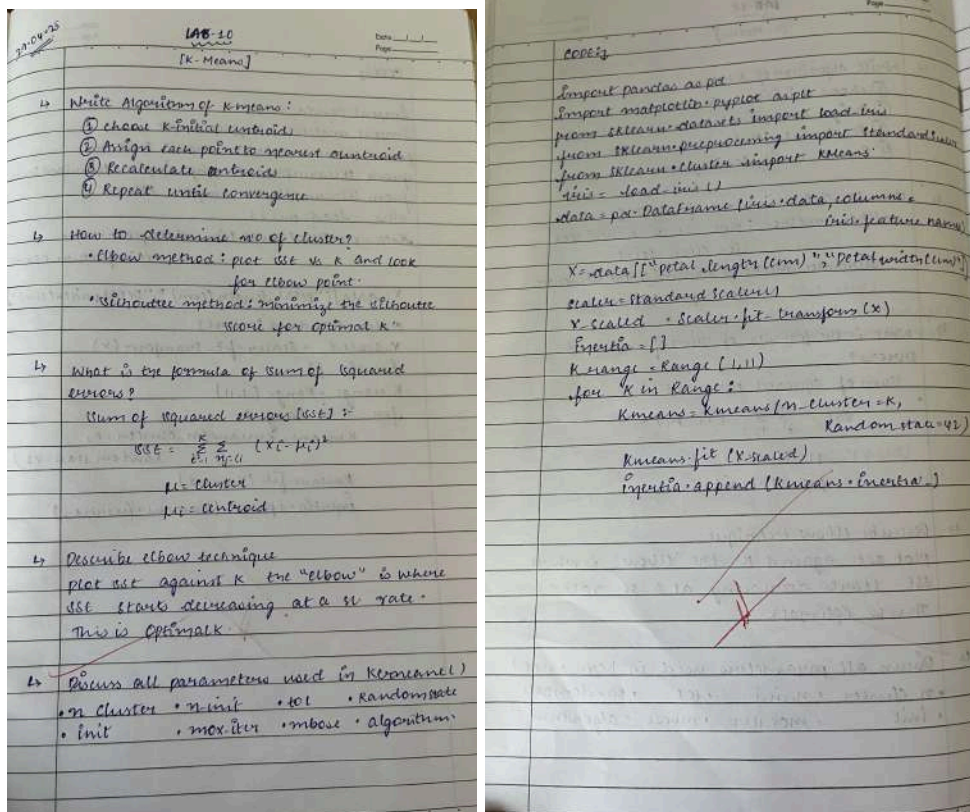 29-04-25
LAB-10
Date
Page
[K-Means]
↳ Write Algorithm of K-means :
① choose K-initial centroids
② Assign each point to nearest centroid
③ Recalculate centroids
④ Repeat until convergence
↳ How to determine no of cluster?
• Elbow method : plot SSE vs K and look
for elbow point.
• Silhoutte method : minimize the silhoutte
score for optimal K
↳ What is the formula of sum of squared
errors?
Sum of squared errors [SSE] :-
SSE =
(xi - μi)²
μ = cluster
μi = centroid
↳ Describe elbow technique
plot SSE against K the "elbow" is where
SSE starts decreasing at a rate.
This is optimal K.
↳ Discuss all parameters used in
• n cluster • n-init • tol • Random state
• init • max-iter • algorithm.
Page
CODE :-
import pandas as pd
import matplotlib.pyplot as plt
from sklearn.datasets import load-iris
from sklearn.preprocessing import Standard
from sklearn.cluster import KMeans.
iris = load-iris()
data = pd.DataFrame (iris.data, columns =
iris.feature name)
X = data [["petal length (cm)", "petal width (cm)"]]
scaler = Standard Scaler()
X-scaled = scaler.fit-transform (X)
Inertia = []
K range = Range (1,11)
for K in Range :
Kmeans = Kmeans (n-cluster = K,
Random state = 42)
Kmeans.fit (X-scaled)
inertia.append (Kmeans.inertia-)